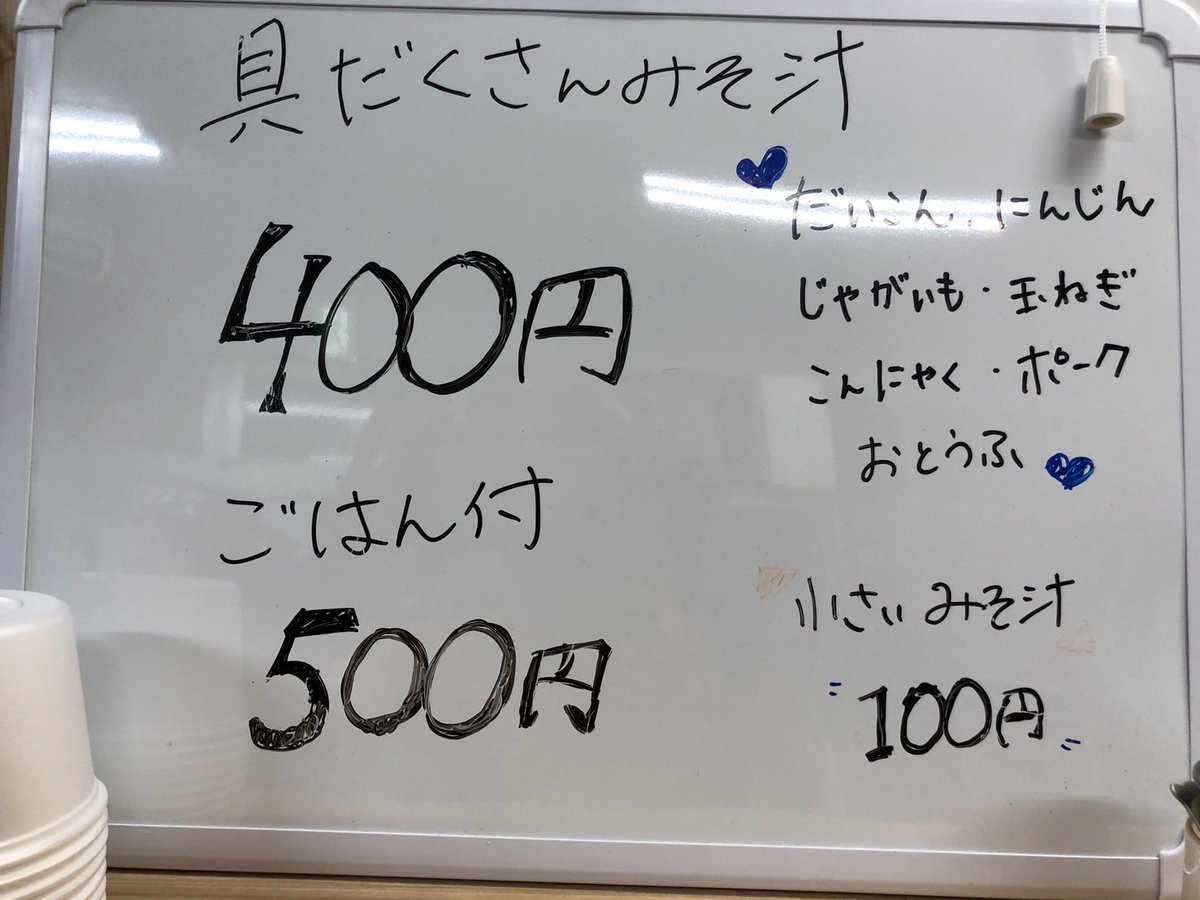 具だくさんみそ汁
400円
ごはん付
500円
だいこん・にんじん
じゃがいも・玉ねぎ
こんにゃく・ポーク
おとうふ
小さいみそ汁
100円